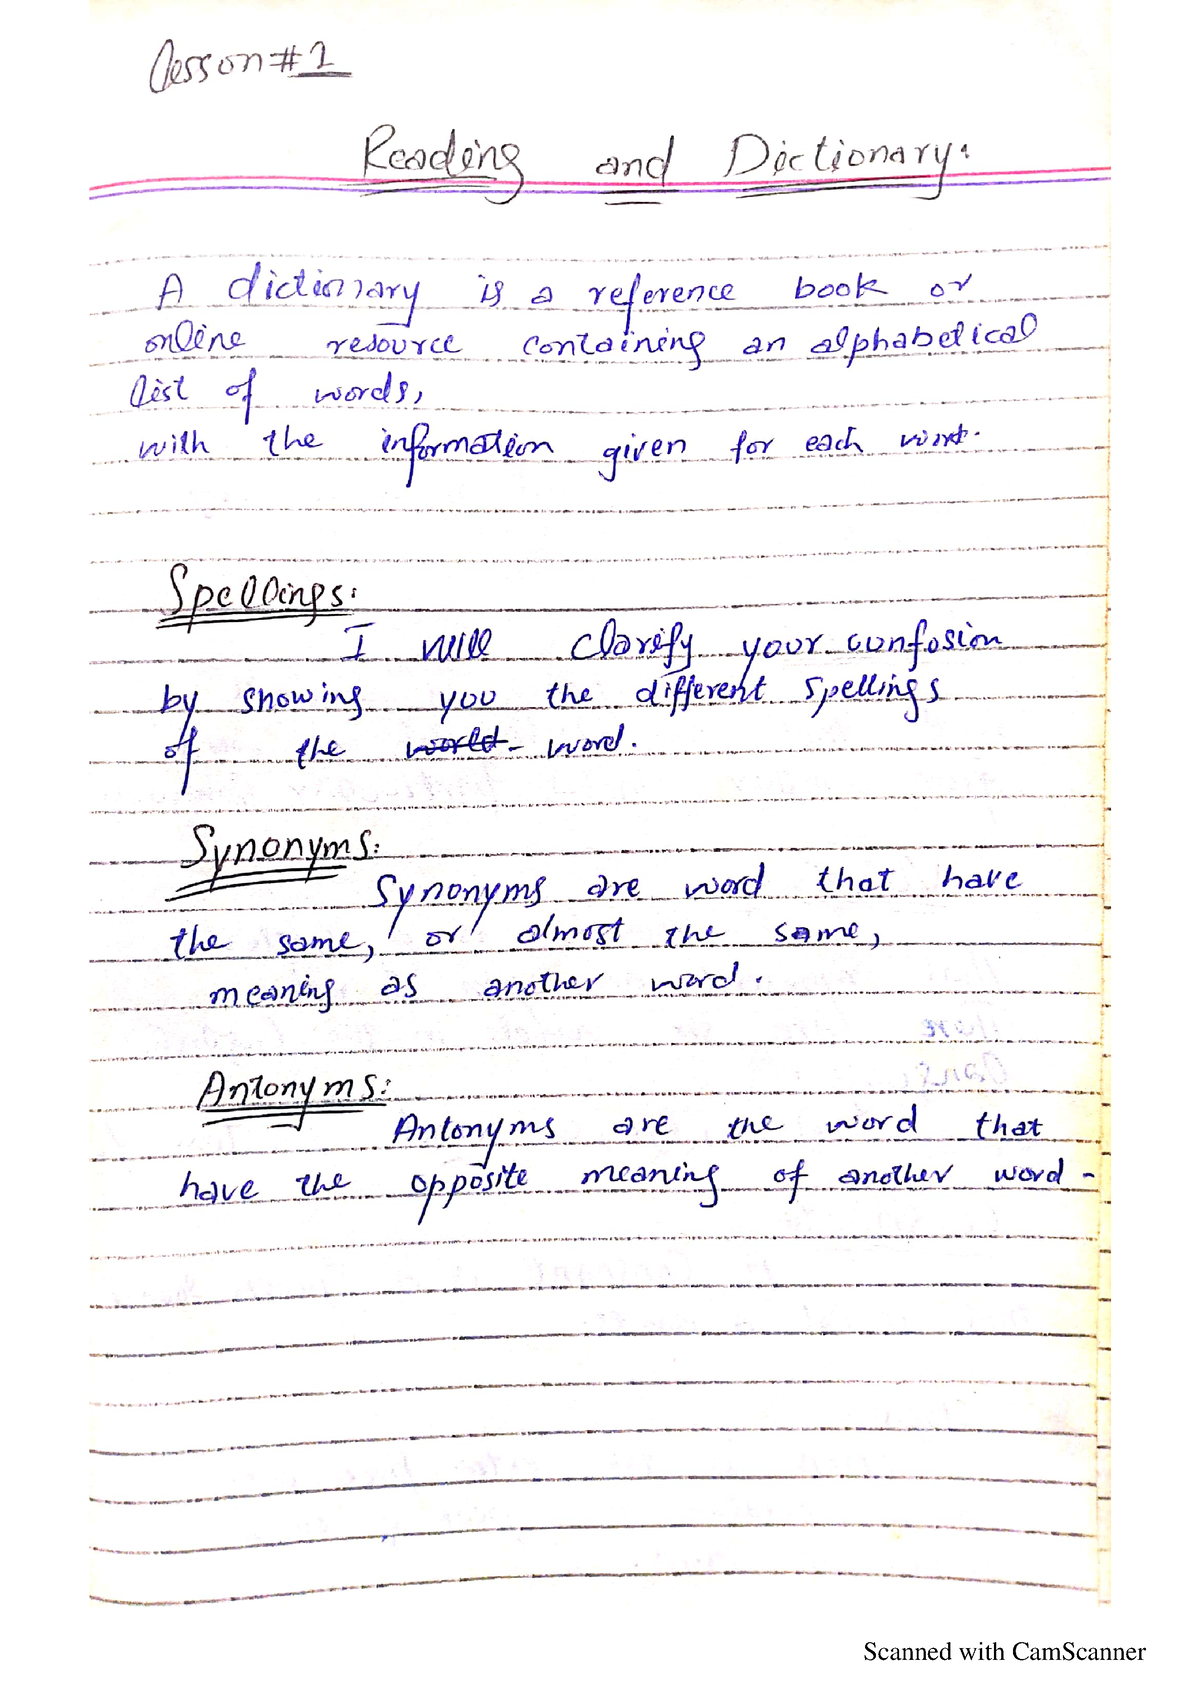 Lesson#1
Reading and Dictionary:
A dictionary is a reference book or
online resource containing an alphabetical
list of words,
with the information given for each word.
Spellings:
I will clarify your confusion
by showing you the different spellings
of the world word.
Synonyms:
Synonyms are word that have
the same, or almost the same,
meaning as another word.
Antonyms:
Antonyms are the word that
have the opposite meaning of another word-
Scanned with CamScanner